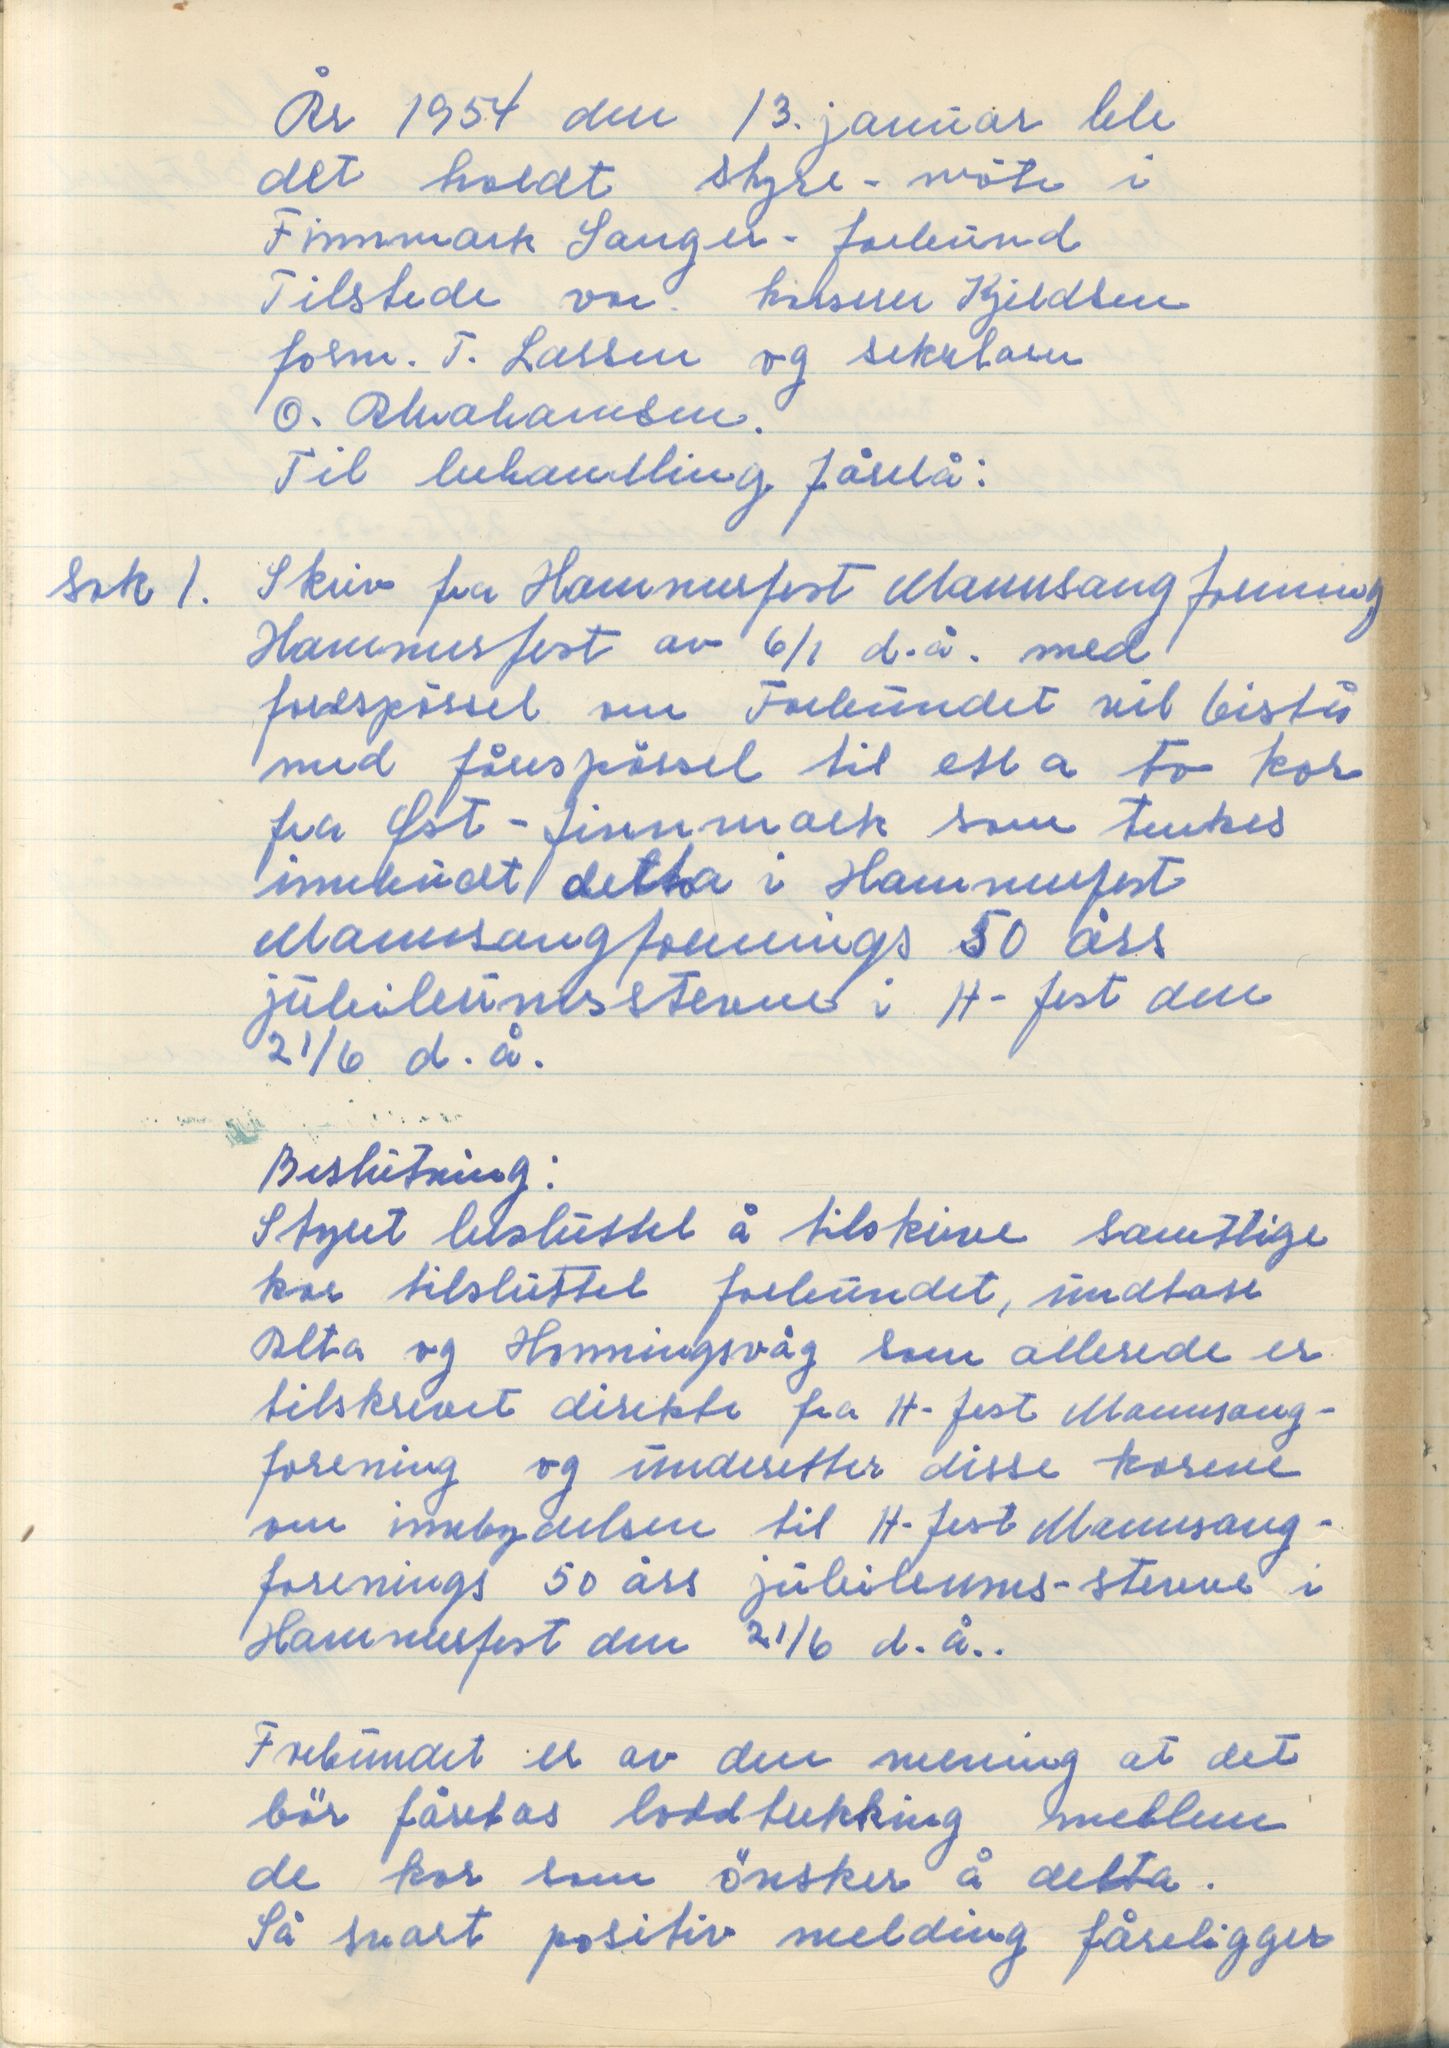 År 1954 den 13. januar ble
det holdt styre-möte i
Finnmark Sanger-forbund
Tilstede var kasserer Kjeldsen
form. T. Larsen og sekretæren
O. Abrahamsen.
Til behandling fårelå:
Sak 1. Skriv fra Hammerfest Mannsangforening
Hammerfest av 6/1 d.å. med
forespörsel om Forbundet vil bistå
med fårespörsel til ett a to kor
fra Øst-finnmark som tenkes
innbudt detta i Hammerfest
Mannsangforenings 50 års
jubileumsstevne i H-fest den
21/6 d.å.
Beslutning:
Styret besluttet å tilskrive samtlige
kor tilsluttet forbundet, undtatt
Alta og Honningsvåg som allerede er
tilskrevet direkte fra H-fest Mannsang-
forening og underetter disse korene
om innbydelsen til H-fest Mannsang-
forenings 50 års jubileums-stevne i
Hammerfest den 21/6 d.å..
Forbundet er av den mening at det
bör fåretas loddtrekking mellem
de kor som önsker å delta.
Så snart positiv melding fåreligger